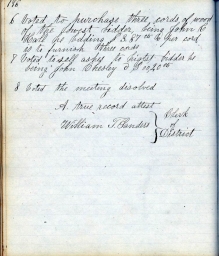 6 Voted to purchase three cords of wood
of the lowest bidder being John C
Hall he bidding $2.87 per cor
d is to furnish three cords
7 Voted to sell ashes to highest bidder he
being John Chesley
8 Voted the meeting desolved
A true record attest
William T. Flanders } Clerk
of
District